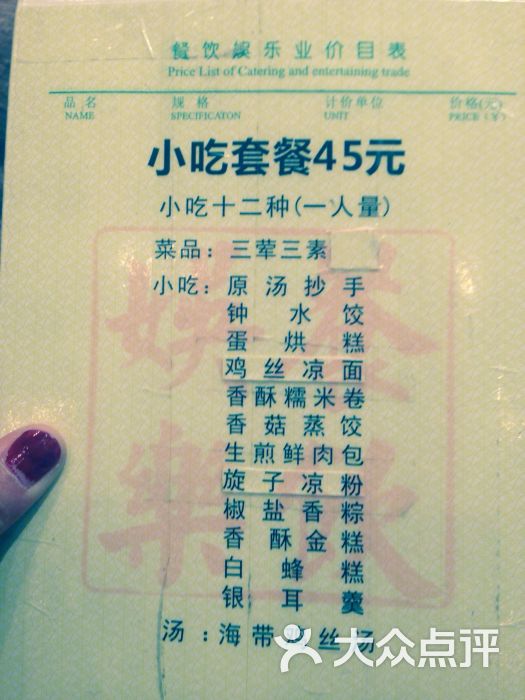 餐饮娱乐业价目表
Price List of Catering and entertaining trade
品名 规格 计价单位 价格(元)
NAME SPECIFICATON UNIT PRICE (¥)
小吃套餐45元
小吃十二种(一人量)
菜品：三荤三素
小吃：原汤抄手
钟水饺
蛋烘糕
鸡丝凉面
香酥糯米卷
香菇蒸饺
生煎鲜肉包
旋子凉粉
椒盐香粽
香酥金糕
白蜂糕
银耳羹
汤：海带鸡丝汤
大众点评